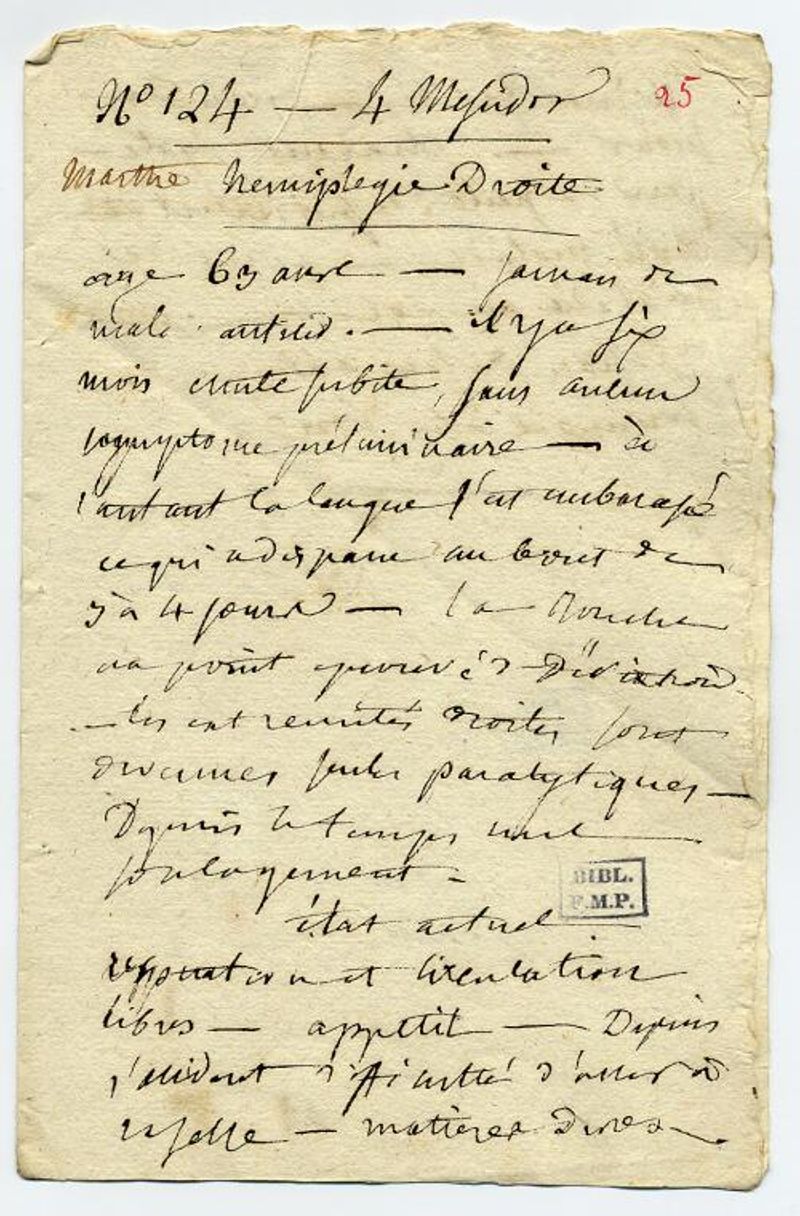 No 124 — 4 Messidor 25
Marthe hemiplegie Droite
age 63 ans — jamais de
mala. anterieu. — il y a six
mois chute subite, sans aucun
symptome préliminaire — à
l'instant la langue s'est embarassé
ce qui a disparu au bout de
3 à 4 jours — la Bouche
na point éprouvé de Déviation
— les extremités droites sont
devenues seules paralytiques —
Depuis ce temps nul
soulagement.
état actuel
respiration et circulation
libres — appetit — Depuis
l'accident difficulté d'aller à
la selle — matieres dures —
BIBL.
F.M.P.